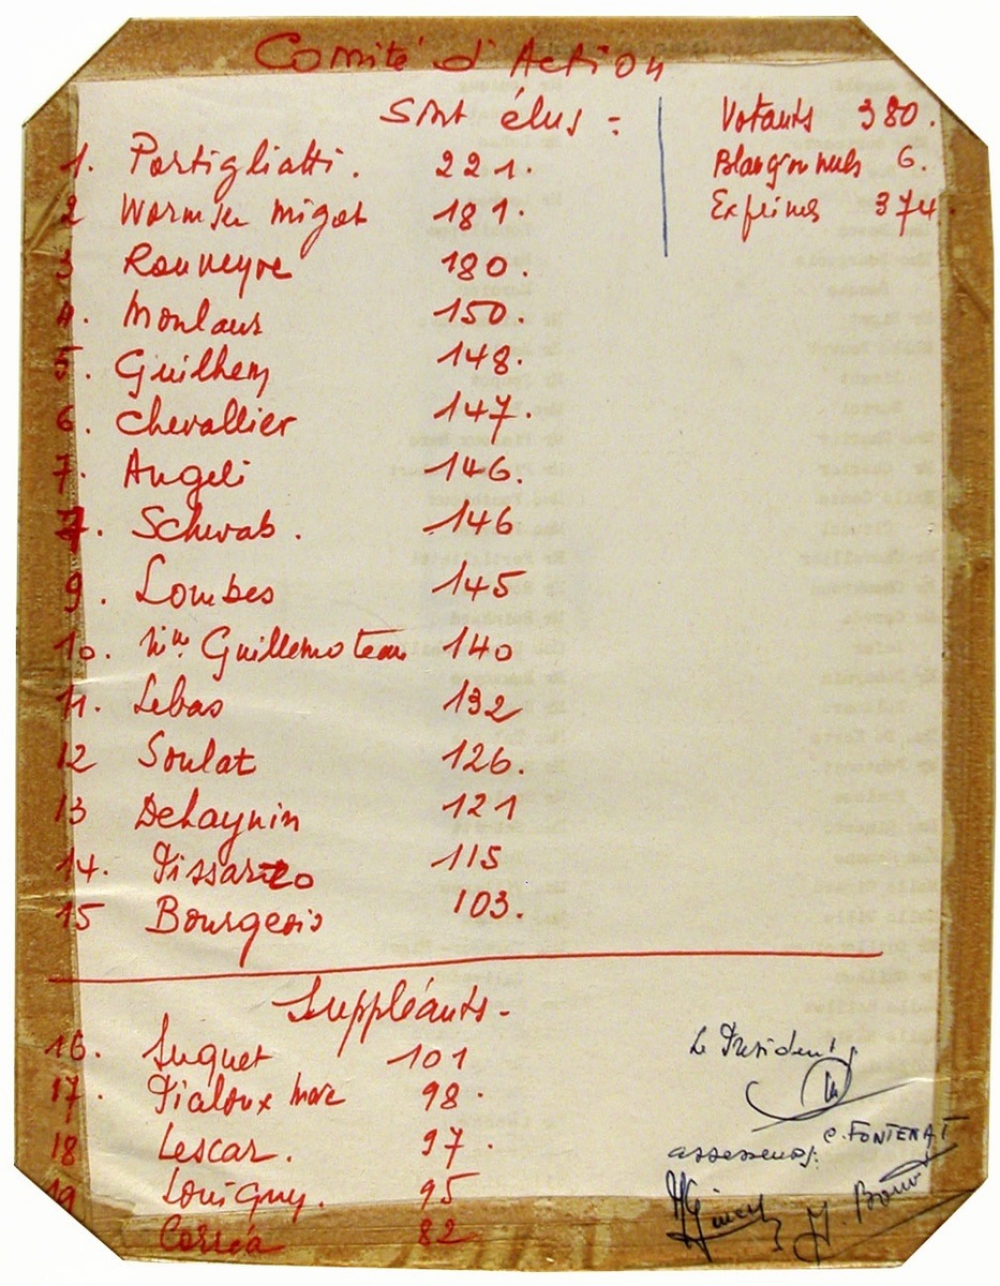 Comité d'Action
Sont élus :
Votants 380.
Blancs ou nuls 6.
Exprimés 374.
1. Portigliatti. 221.
2 Wormser Migot 181.
3 Rouveyre 180.
4. Moulaus 150.
5. Guilhem 148.
6. Chevallier 147.
7. Angeli 146.
7. Schwab. 146
9. Loubes 145
10. Guillemoteau 140
11. Lebas 132
12 Soulat 126.
13 Dehaynin 121
14. Pissarro 115
15 Bourgeois 103.
Suppléants -
16. Suquet 101
17. Pialoux Marc 98.
18 Lescar. 97.
19 Louiguy. 95
Corréa 82
Le Président :
C. FONTENAT
assesseurs :